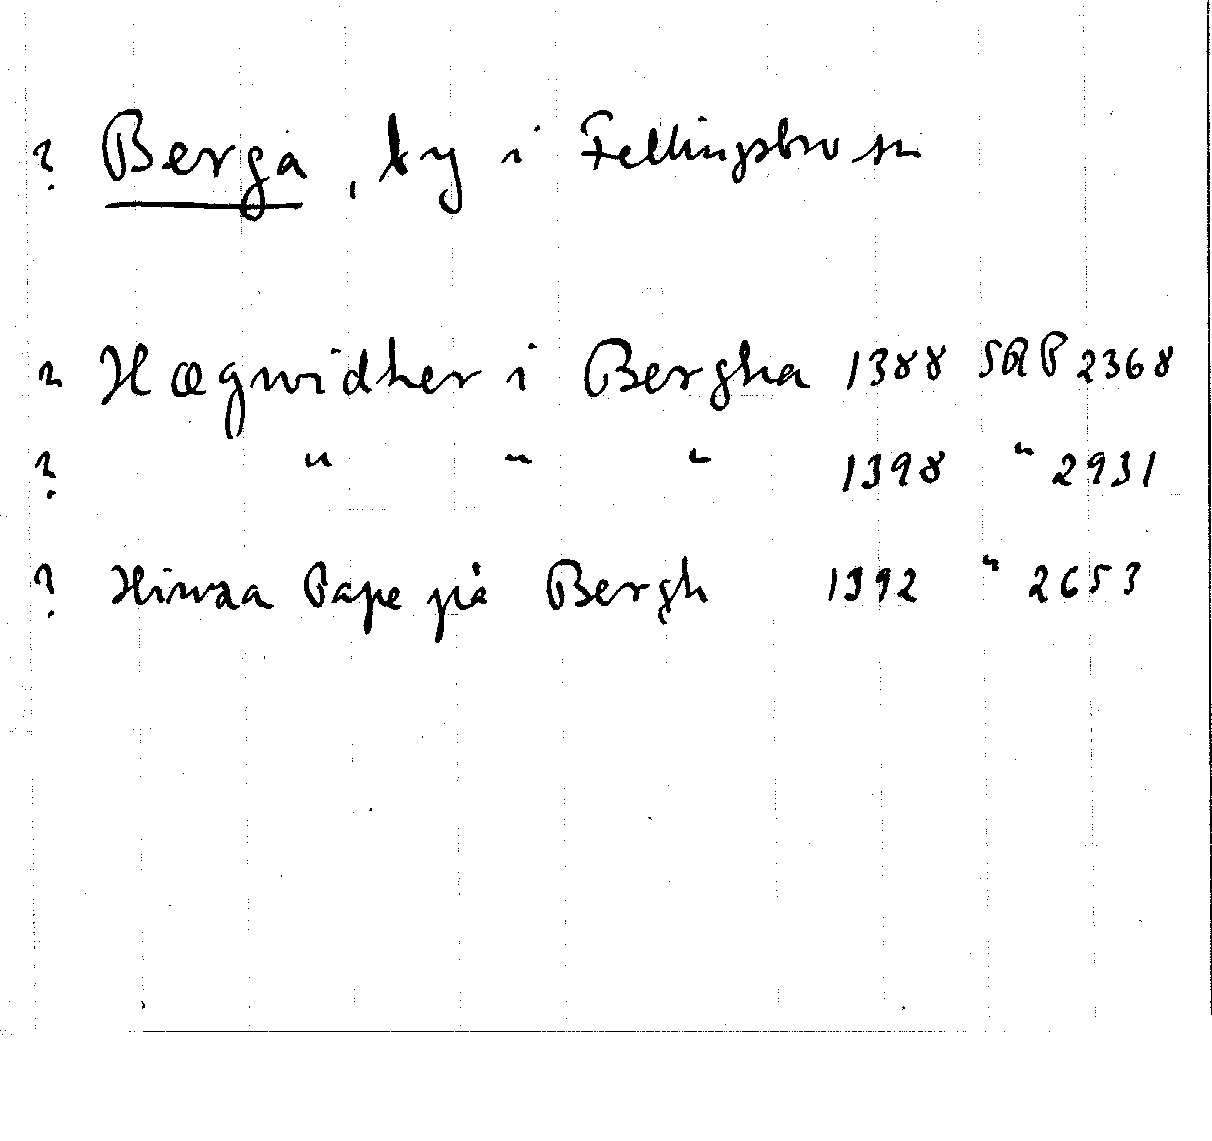 ? Berga, by i Fellingsbro sn
? Hægwidher i Bergha 1388 SRP 2368
? " " " 1398 " 2931
? Hinza Pape på Bergh 1392 " 2653